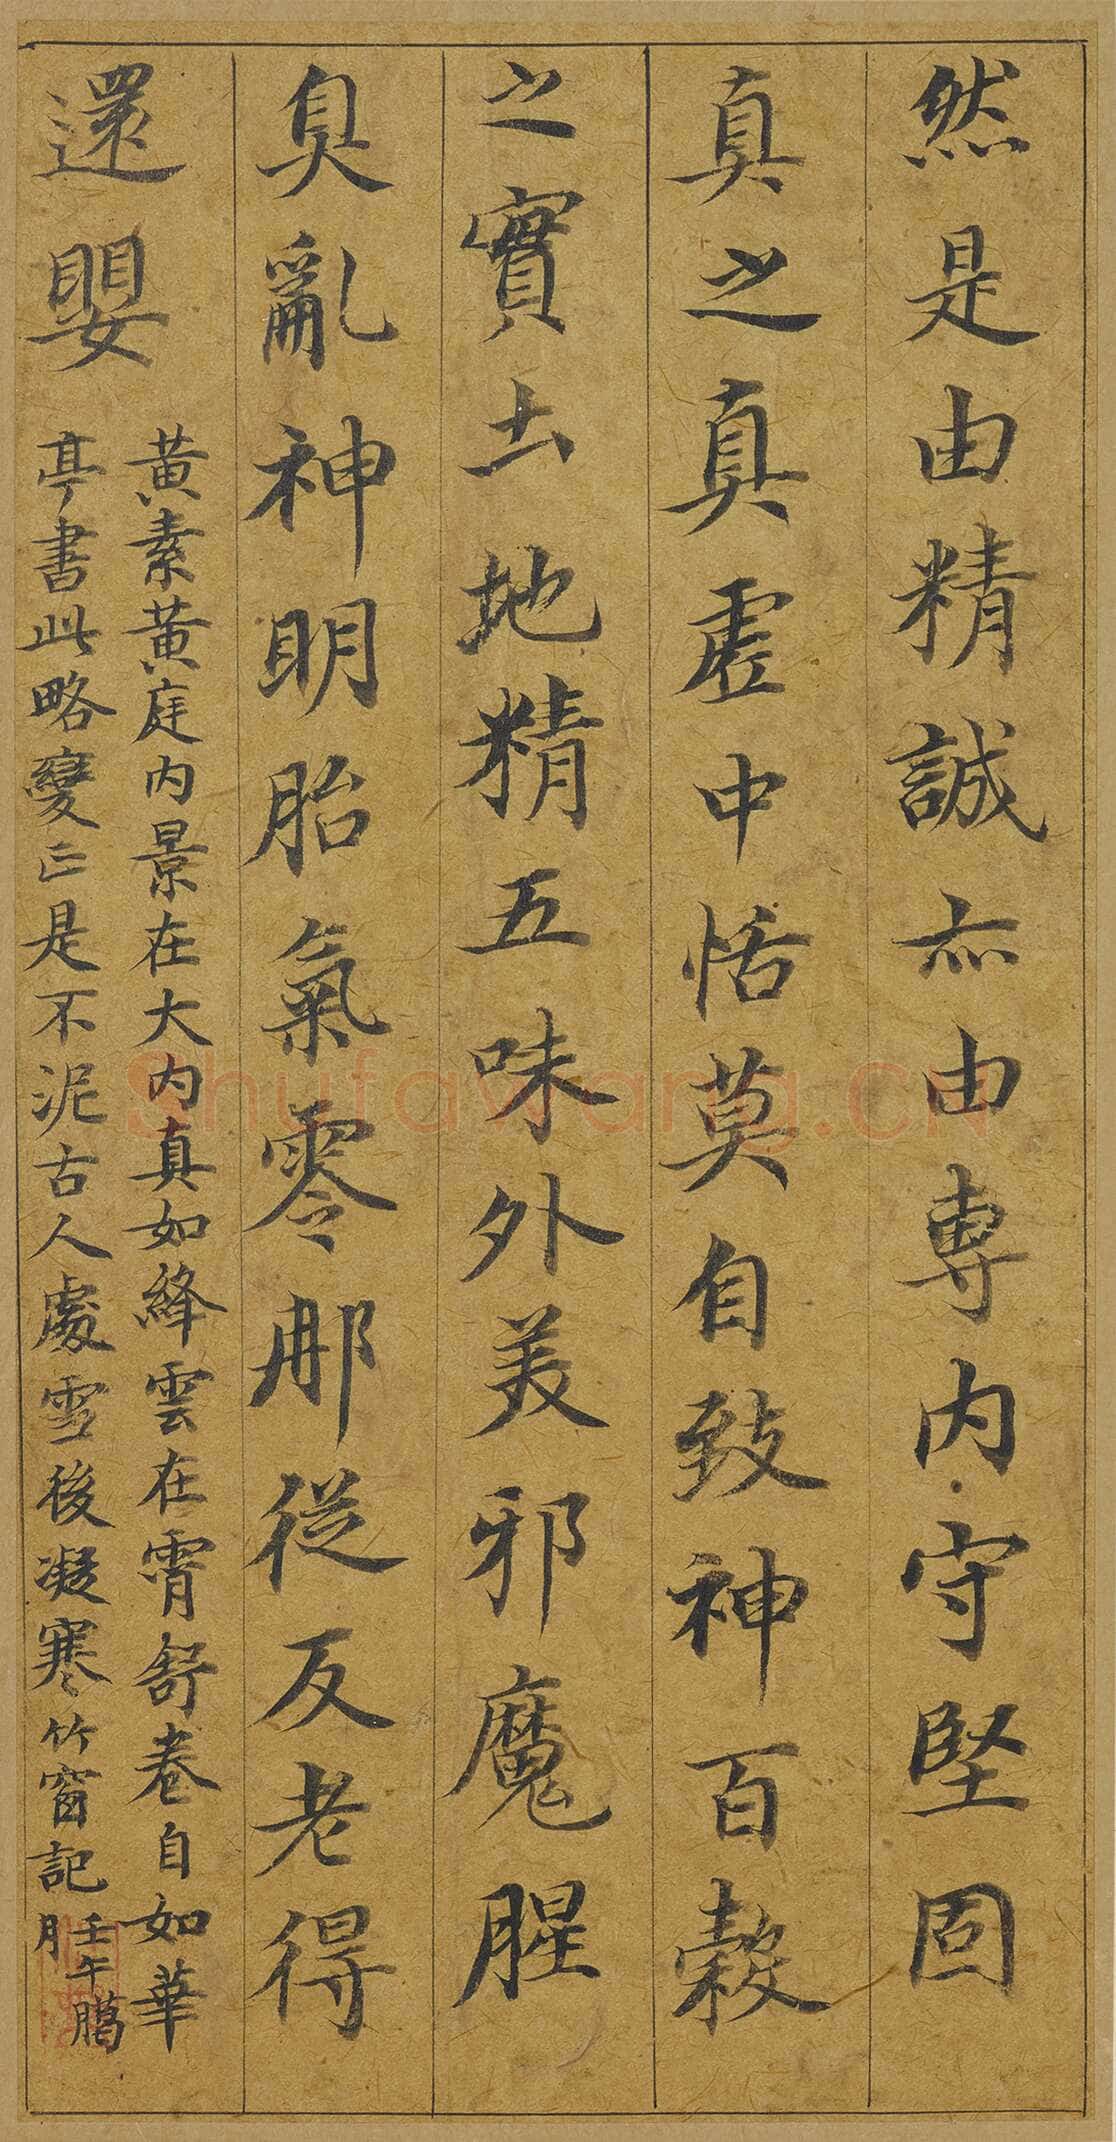 然是由精誠亦由專内守堅固
真之真虛中恬莫自致神百穀
之實土地精五味外美邪魔腥
臭亂神明胎氣零那從反老得
還嬰
黃素黃庭内景在大内真如絳雲在霄舒卷自如華
亭書此略變正是不泥古人處雪後凝寒竹窗記
壬午臈
月
Shufawang.cn